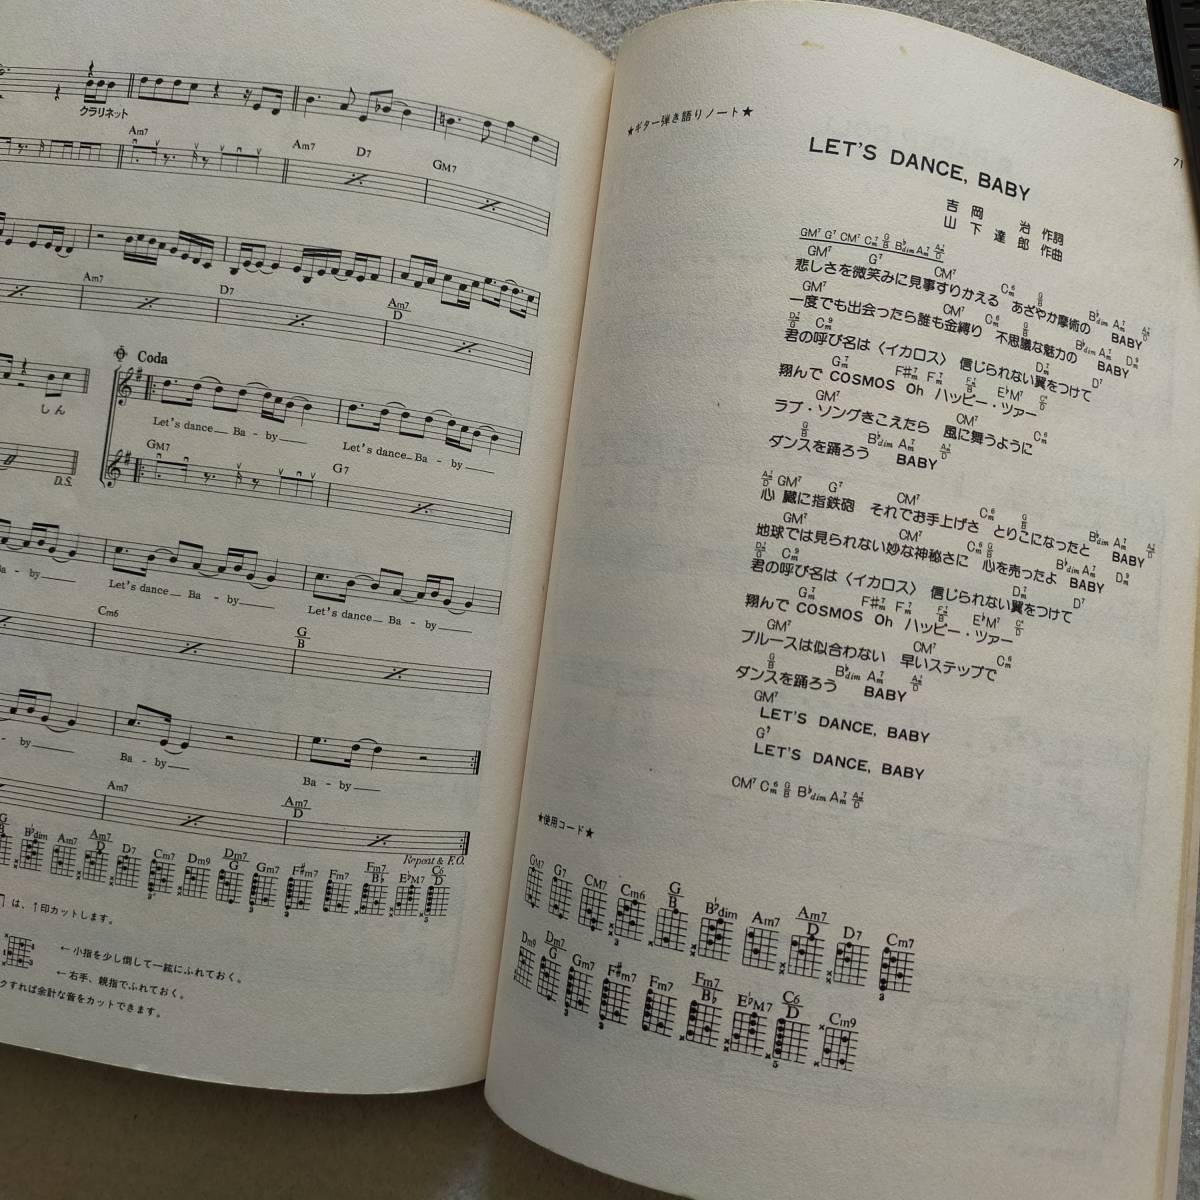 クラリネット
Am7
Am7 D7 GM7
Am7 D7 Am7/D
Coda
しん
Let's dance Ba - by Let's dance Ba - by
GM7 G7
D.S.
a - by Let's dance Ba - by Let's dance Ba - by
Cm6 G/B
by Ba - by Ba - by
Am7 Am7/D
Repeat & F.O.
G/B B♭dim Am7 Am7/D D7 Cm7 Dm9 Dm7/G Gm7 F#m7 Fm7 Fm7/B♭ E♭M7 C6/D
は、↑印カットします。
←小指を少し倒して一絃にふれておく。
←右手、親指でふれておく。
クすれば余計な音をカットできます。
71
★ギター弾き語りノート★
LET'S DANCE, BABY
吉岡 治 作詞
山下達郎 作曲
GM7 G7 CM7 Cm6 G/B B♭dim Am7 Am7/D
GM7 G7 CM7 Cm6 G/B B♭dim Am7 Am7/D
悲しさを微笑みに見事すりかえる あざやか摩術の BABY
GM7 CM7 Cm6 G/B B♭dim Am7 Dm9
一度でも出会ったら誰も金縛り 不思議な魅力の BABY
Dm7/G Cm9 Dm7 D7
君の呼び名は〈イカロス〉 信じられない翼をつけて
Gm7 F#m7 Fm7 Fm7/B♭ E♭M7 C6/D
翔んで COSMOS Oh ハッピー・ツァー
GM7 CM7 Cm6
ラブ・ソングきこえたら 風に舞うように
G/B B♭dim Am7 Am7/D
ダンスを踊ろう BABY
Am7/D GM7 G7 CM7 Cm6 G/B B♭dim Am7 Am7/D
心臓に指鉄砲 それでお手上げさ とりこになったと BABY
GM7 CM7 Cm6 G/B B♭dim Am7 Dm9
地球では見られない妙な神秘さに 心を売ったよ BABY
Dm7/G Cm9 Dm7 D7
君の呼び名は〈イカロス〉 信じられない翼をつけて
Gm7 F#m7 Fm7 Fm7/B♭ E♭M7 C6/D
翔んで COSMOS Oh ハッピー・ツァー
GM7 CM7 Cm6
ブルースは似合わない 早いステップで
G/B B♭dim Am7 Am7/D
ダンスを踊ろう BABY
GM7
LET'S DANCE, BABY
G7
LET'S DANCE, BABY
CM7 Cm6 G/B B♭dim Am7 Am7/D
★使用コード★
GM7 G7 CM7 Cm6 G/B B♭dim Am7 Am7/D D7 Cm7
Dm9 Dm7/G Gm7 F#m7 Fm7 Fm7/B♭ E♭M7 C6/D Cm9